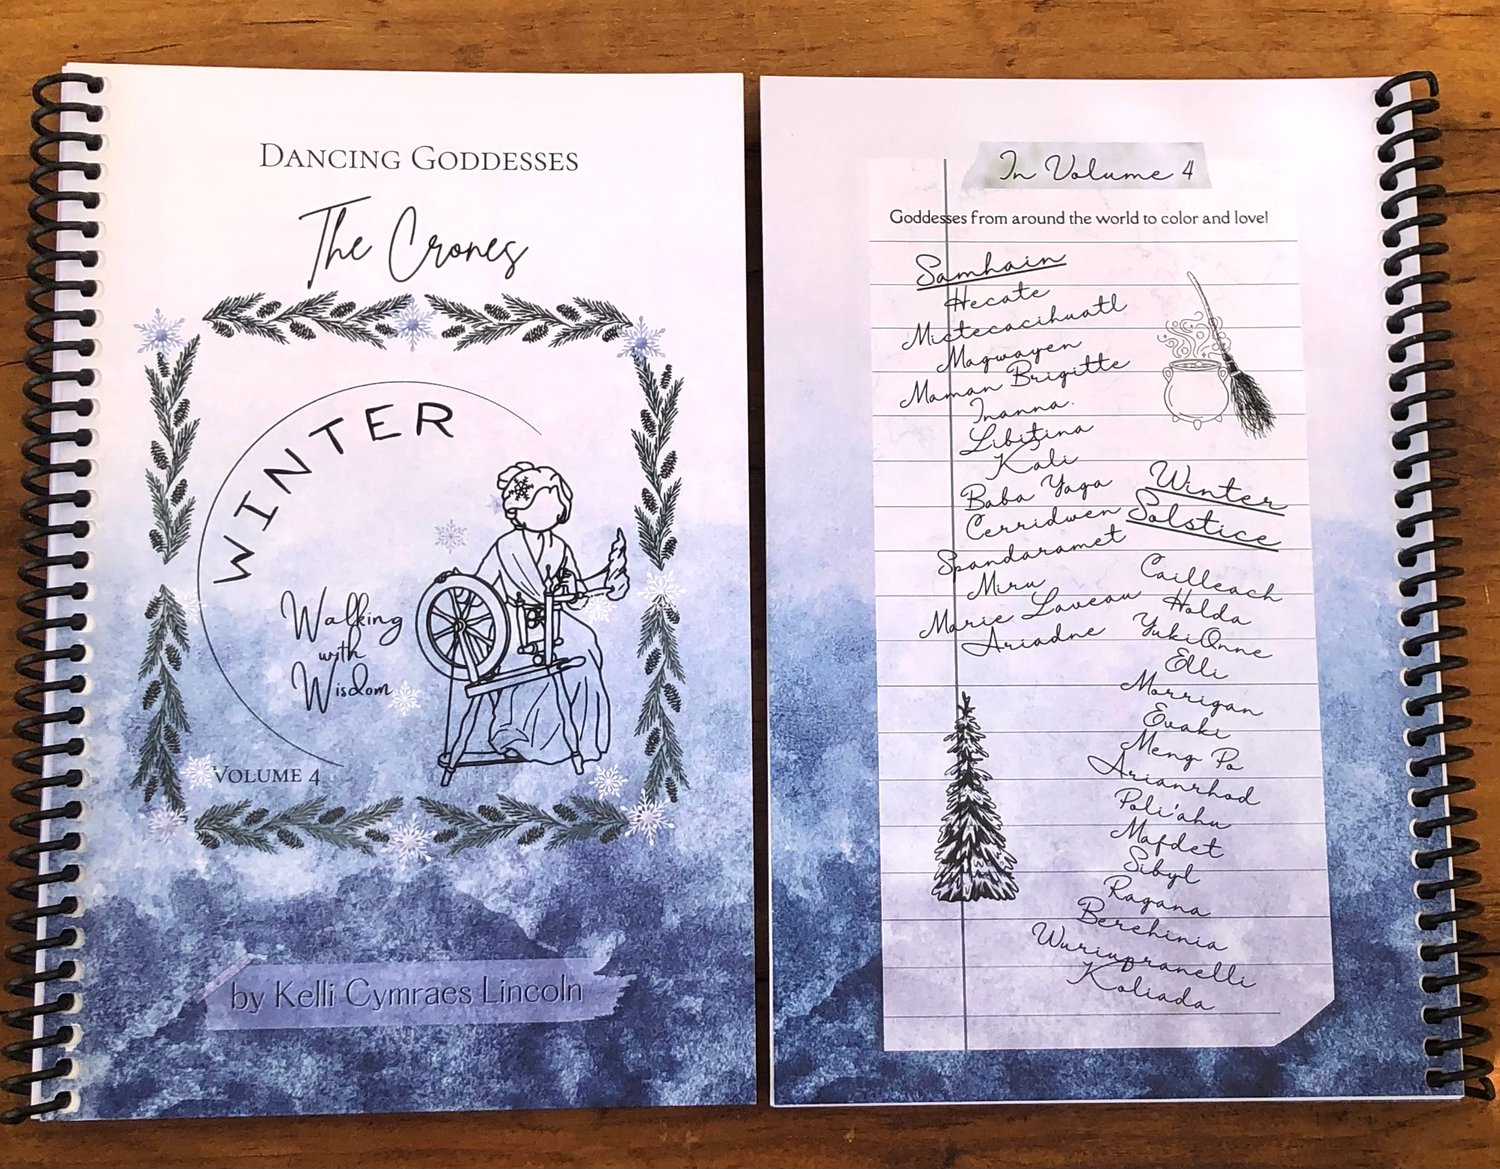 DANCING GODDESSES
The Crones
WINTER
Walking
with
Wisdom
VOLUME 4
by Kelli Cymraes Lincoln
In Volume 4
Goddesses from around the world to color and love!
Samhain
Hecate
Mictecacihuatl
Magwayen
Maman Brigitte
Inanna
Libitina
Kali
Baba Yaga
Cerridwen
Spandaramet
Miru
Marie Laveau
Ariadne
Winter
Solstice
Cailleach
Holda
YukiOnne
Elli
Morrigan
Evaki
Meng Po
Arianrhod
Poli'ahu
Mafdet
Sibyl
Ragana
Berehinia
Wuriupranelli
Koliada